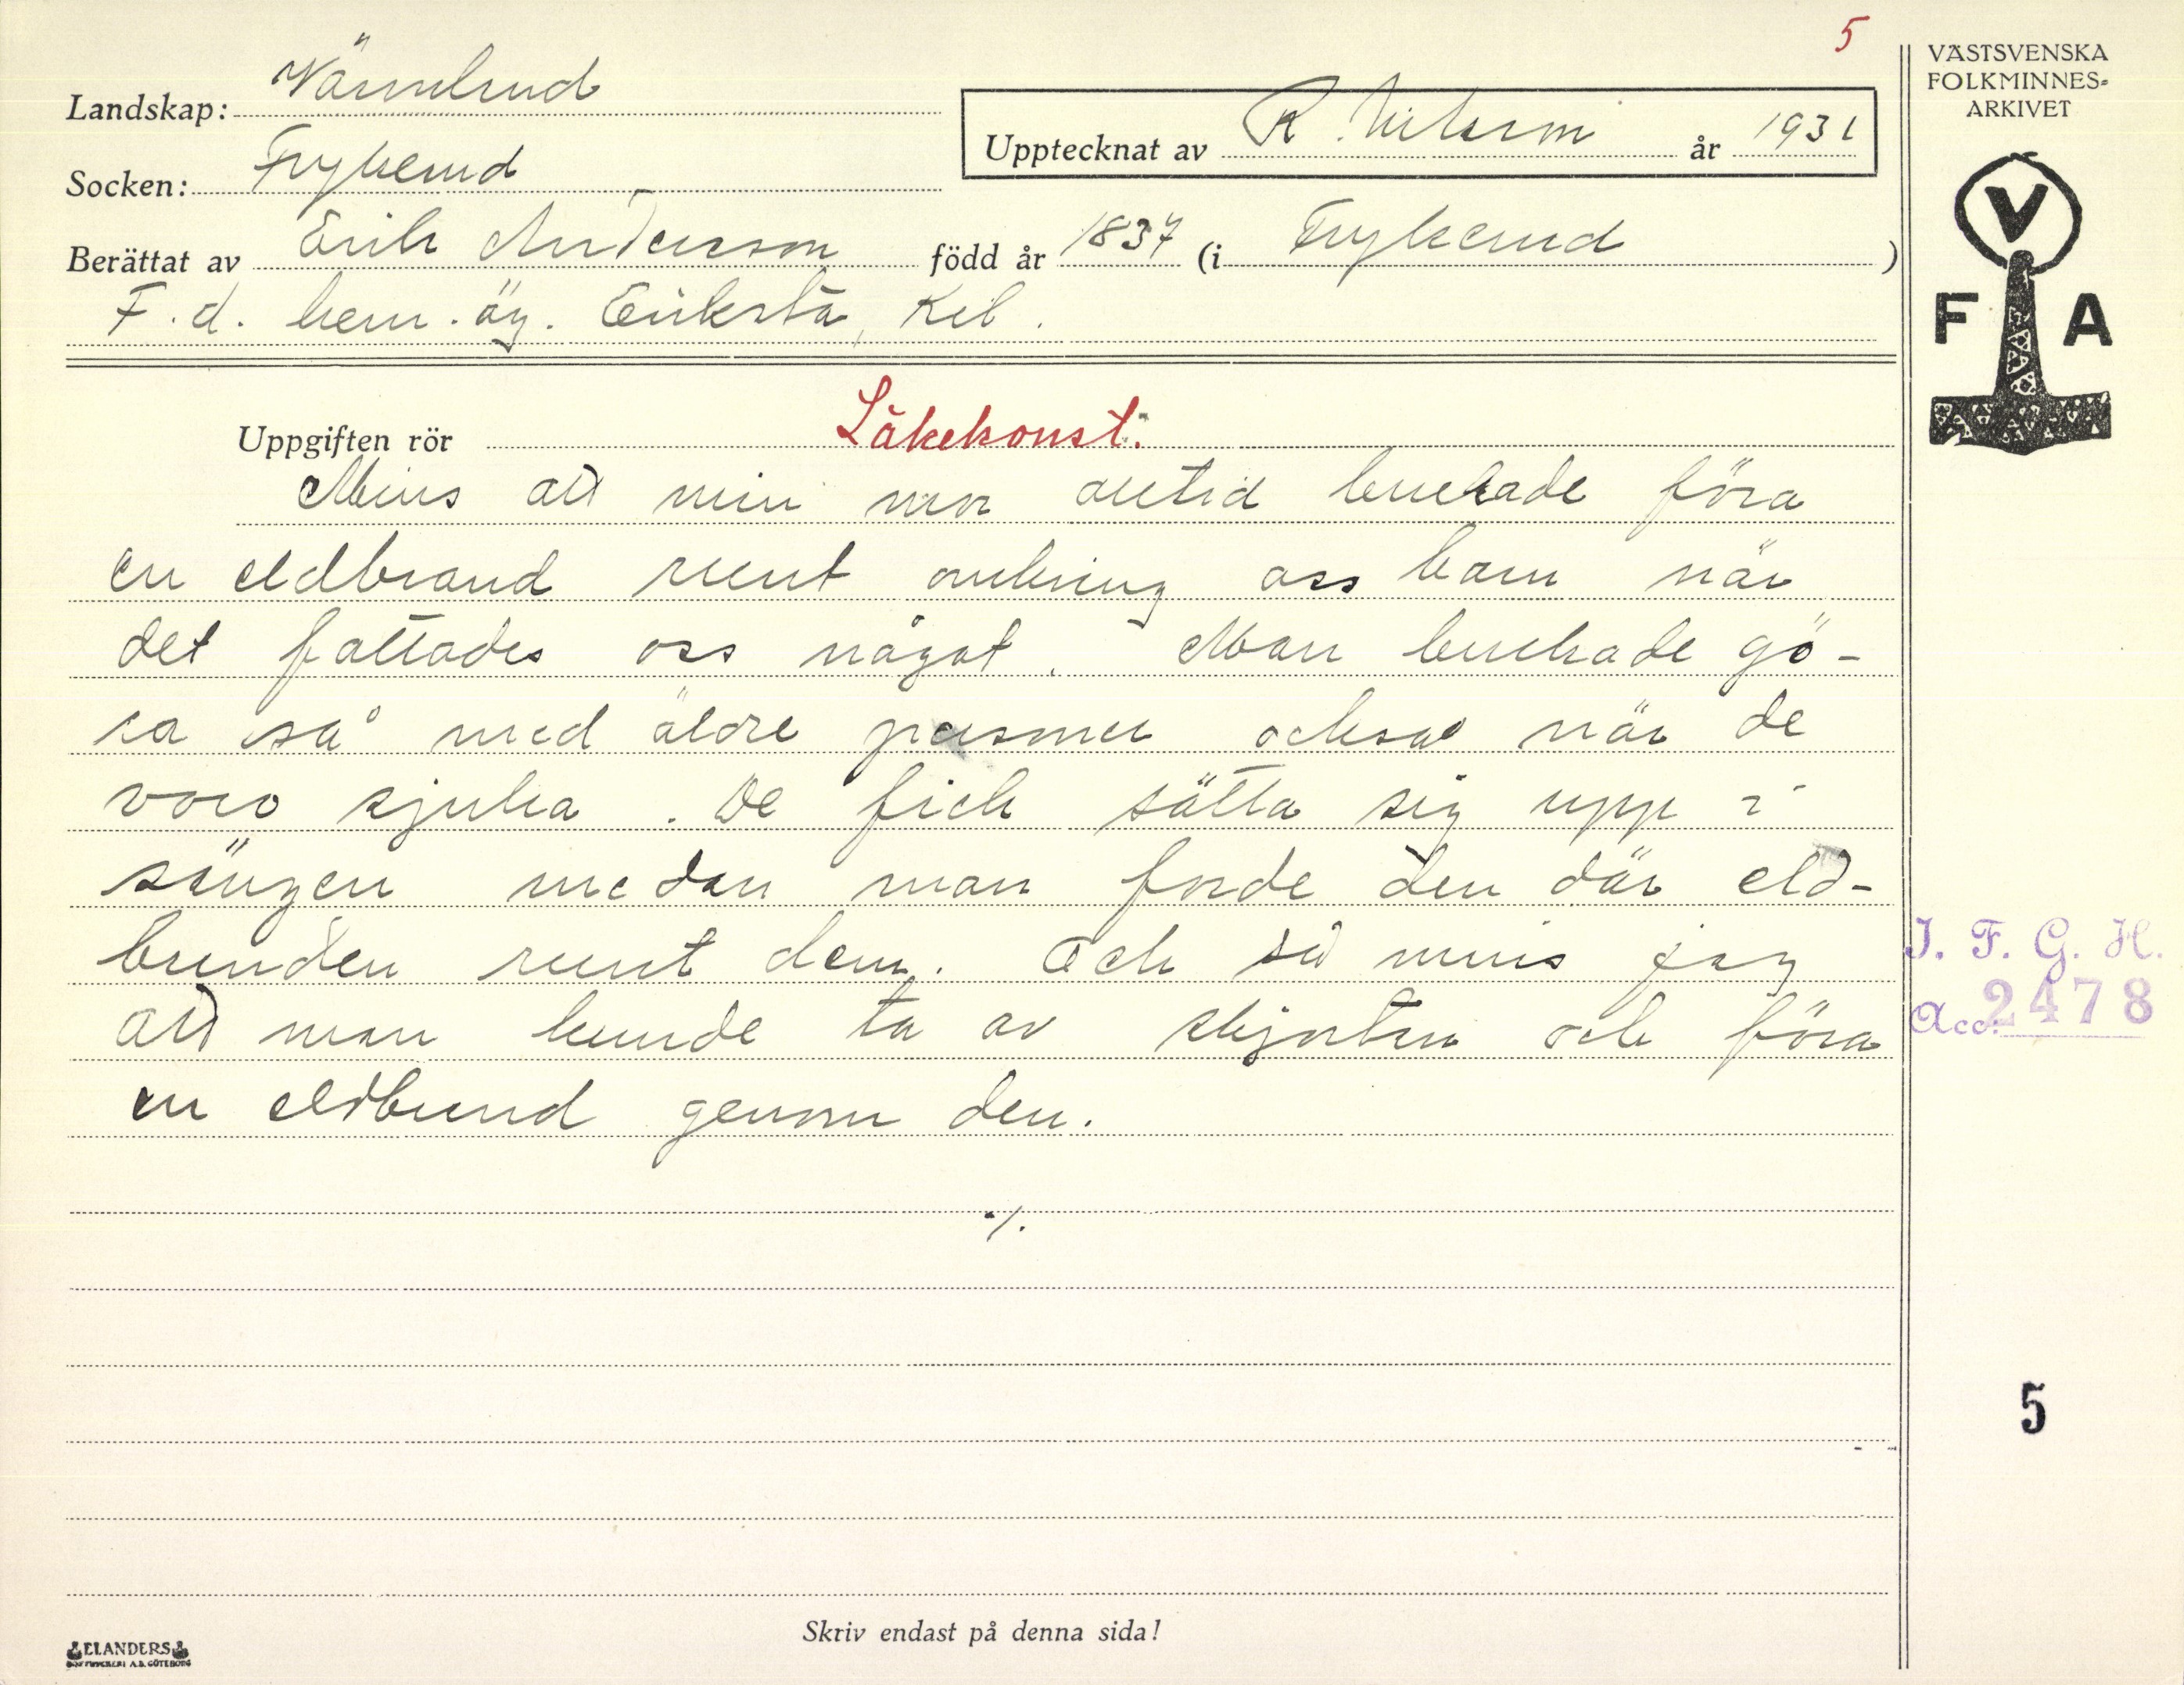 5
VÄSTSVENSKA
FOLKMINNES-
ARKIVET
Landskap: Värmland
Upptecknat av R. Nilsson år 1931
Socken: Fryksrud
Berättat av Erik Andersson född år 1837 (i Fryksrud)
F.d. hem.äg. Eriksta, Kil.
V
F A
Uppgiften rör Läkekonst.
Mins att min mor alltid brukade föra
en eldbrand runt omkring oss barn när
det fattades oss något. Man brukade gö-
ra så med äldre personer också när de
voro sjuka. De fick sätta sig upp i
sängen medan man förde den där eld-
branden runt dem. Och så mins jag
att man kunde ta av skjortan och föra
en eldbrand genom den.
./.
I. F. G. H.
Acc. 2478
5
Skriv endast på denna sida!
ELANDERS
BOKTRYCKERI A.B. GÖTEBORG